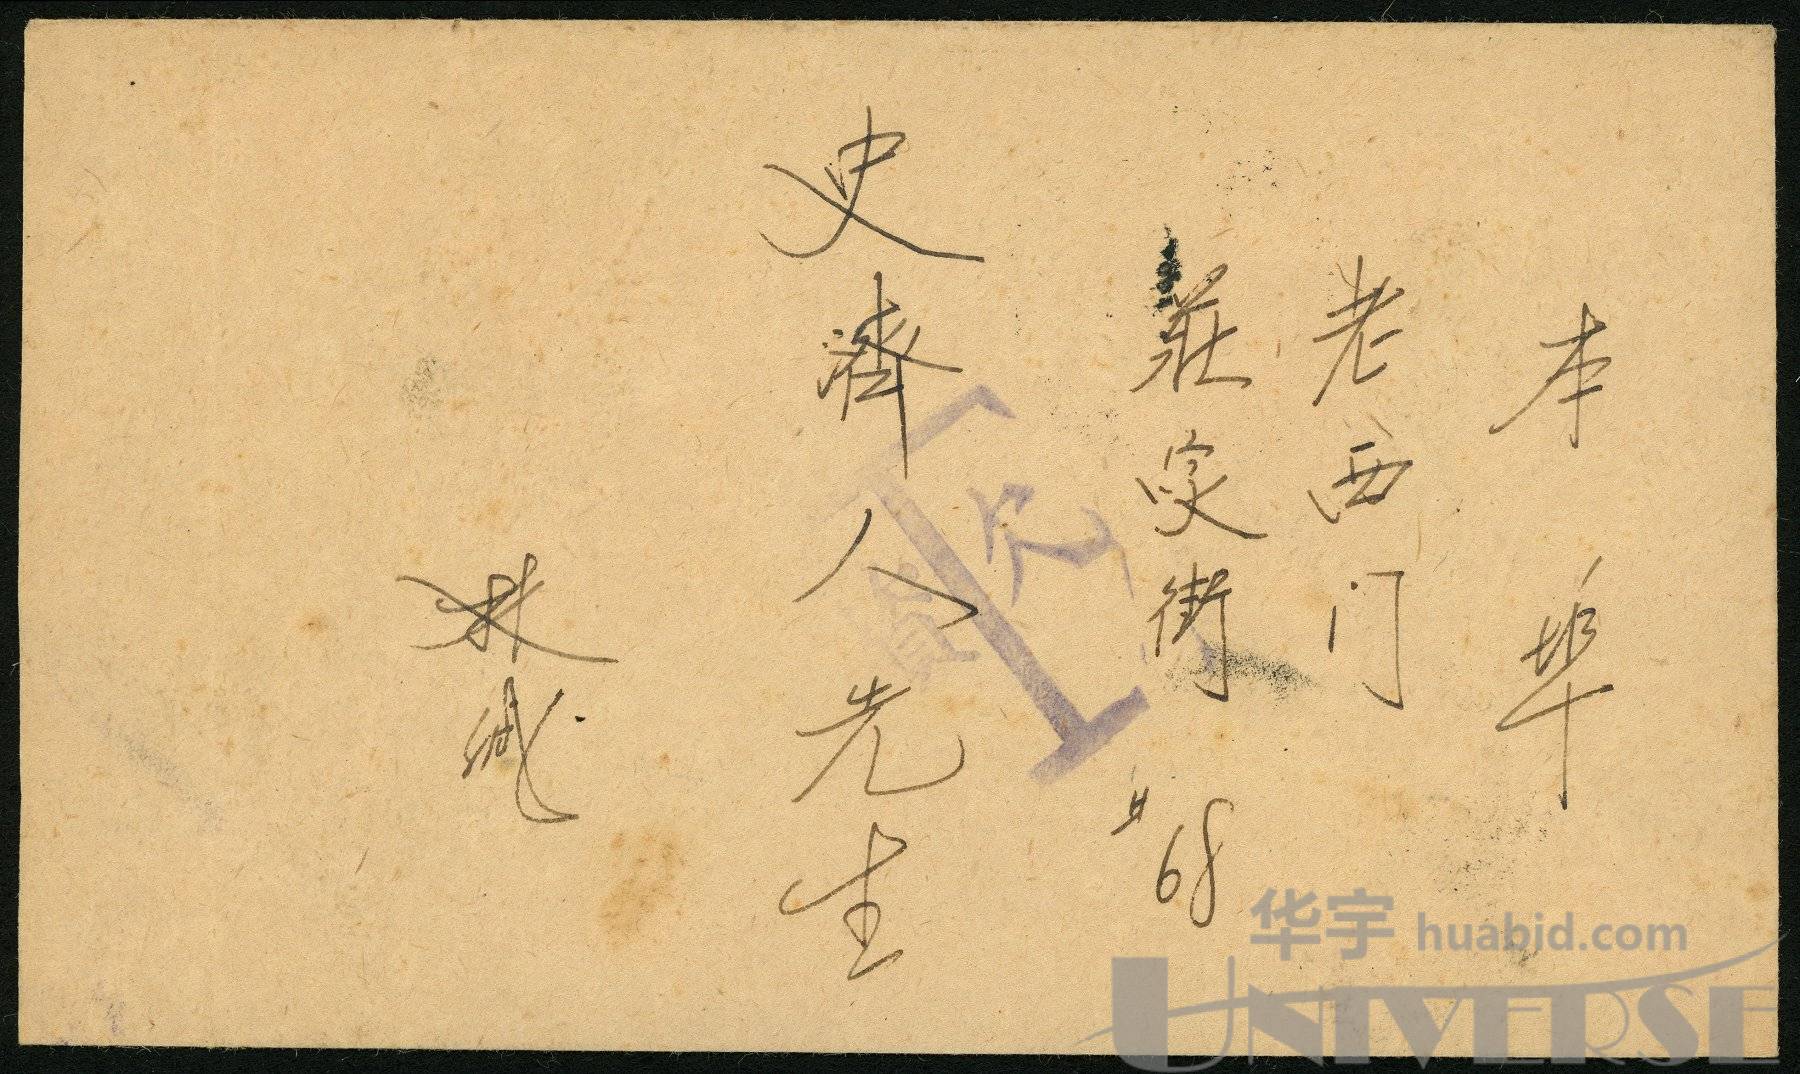 本埠
老西门
莊家街 #68
史濟人先生
林缄
欠資
T
华宇 huabid.com
UNIVERSE